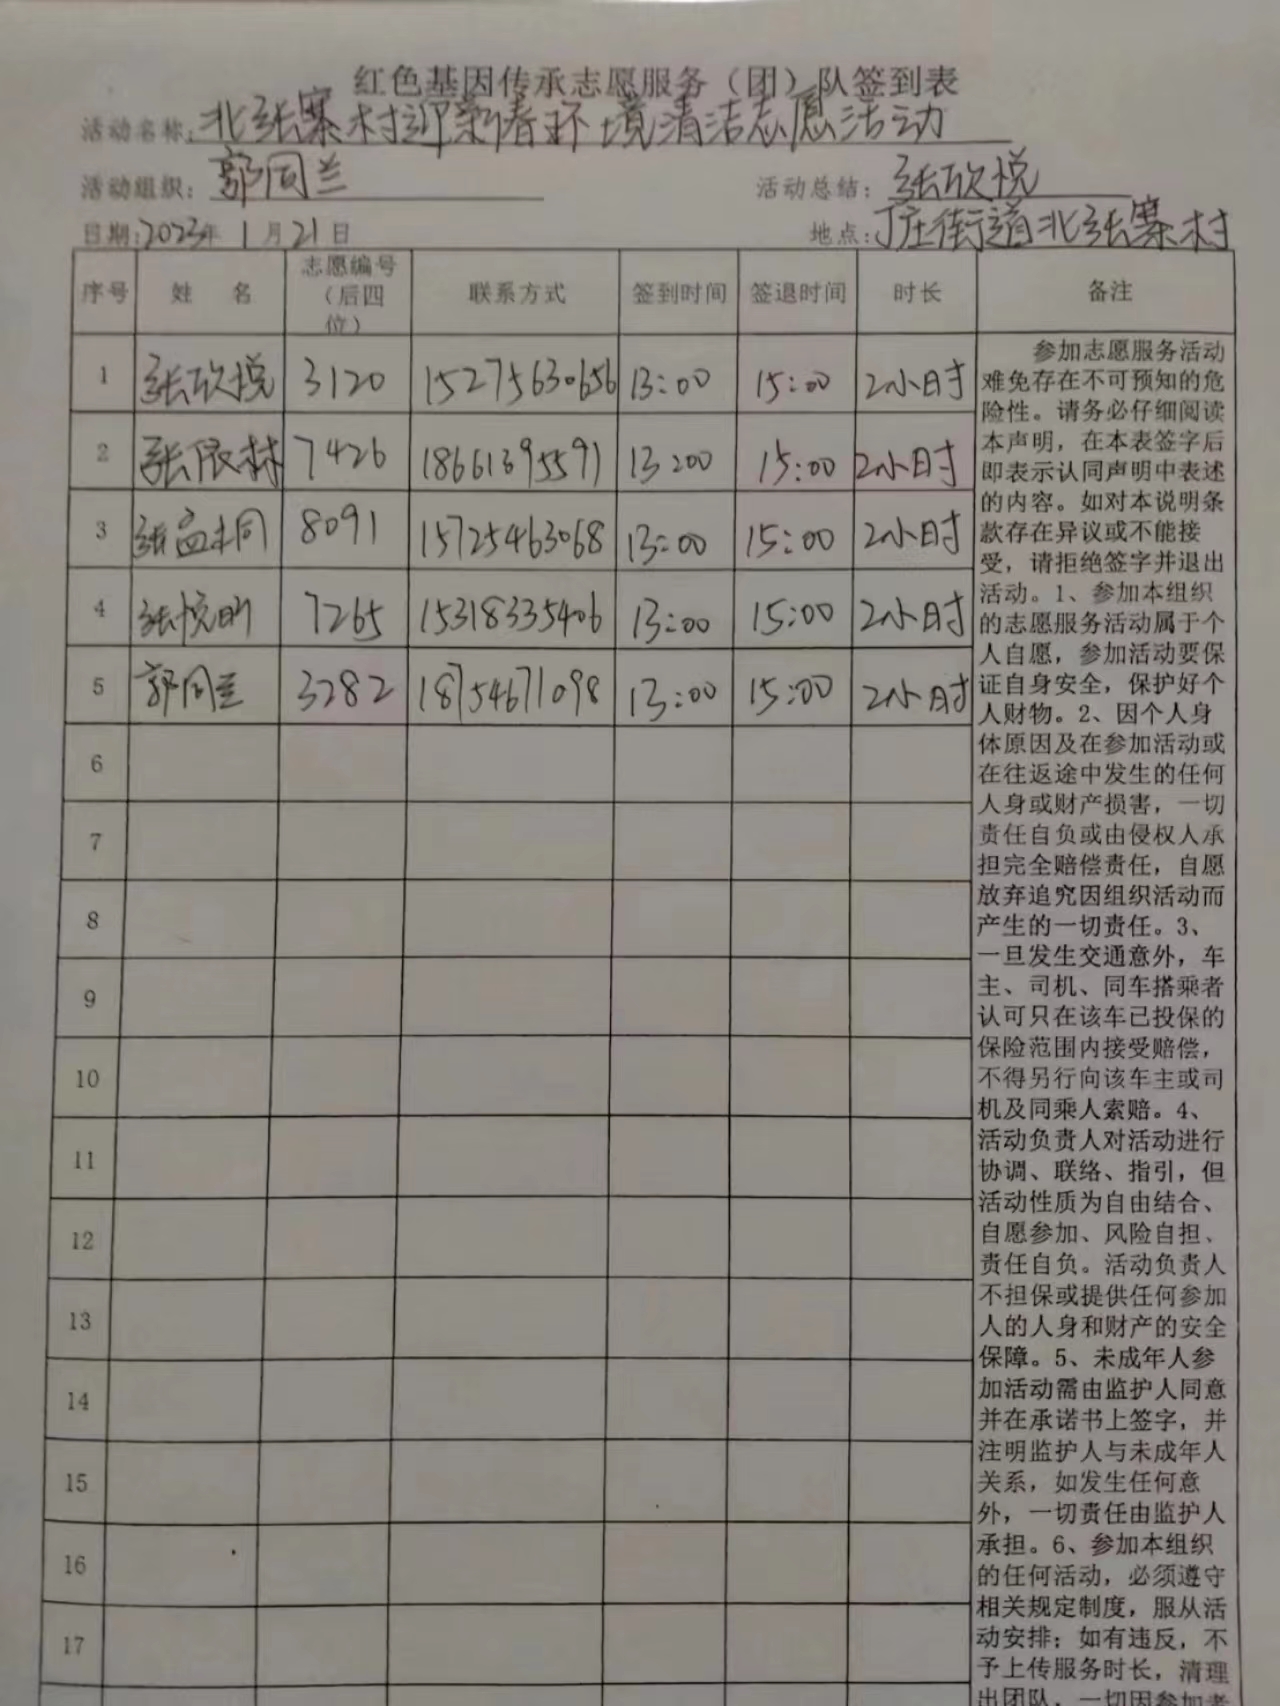 红色基因传承志愿服务（团）队签到表
活动名称：北张寨村迎新春环境清洁志愿活动
活动组织：郭同兰 活动总结：张欣悦
日期：2023年1月21日 地点：丁庄街道北张寨村
序号 姓 名 志愿编号（后四位） 联系方式 签到时间 签退时间 时长 备注
1 张欣悦 3120 15275630656 13:00 15:00 2小时
2 张依林 7426 18661395591 13:00 15:00 2小时
3 张孟桐 8091 15725463068 13:00 15:00 2小时
4 张悦明 7265 15318335406 13:00 15:00 2小时
5 郭同兰 3282 18754671098 13:00 15:00 2小时
6
7
8
9
10
11
12
13
14
15
16
17
参加志愿服务活动
难免存在不可预知的危
险性。请务必仔细阅读
本声明，在本表签字后
即表示认同声明中表述
的内容。如对本说明条
款存在异议或不能接
受，请拒绝签字并退出
活动。1、参加本组织
的志愿服务活动属于个
人自愿，参加活动要保
证自身安全，保护好个
人财物。2、因个人身
体原因及在参加活动或
在往返途中发生的任何
人身或财产损害，一切
责任自负或由侵权人承
担完全赔偿责任，自愿
放弃追究因组织活动而
产生的一切责任。3、
一旦发生交通意外，车
主、司机、同车搭乘者
认可只在该车已投保的
保险范围内接受赔偿，
不得另行向该车主或司
机及同乘人索赔。4、
活动负责人对活动进行
协调、联络、指引，但
活动性质为自由结合、
自愿参加、风险自担、
责任自负。活动负责人
不担保或提供任何参加
人的人身和财产的安全
保障。5、未成年人参
加活动需由监护人同意
并在承诺书上签字，并
注明监护人与未成年人
关系，如发生任何意
外，一切责任由监护人
承担。6、参加本组织
的任何活动，必须遵守
相关规定制度，服从活
动安排；如有违反，不
予上传服务时长，清理
出团队，一切因参加者